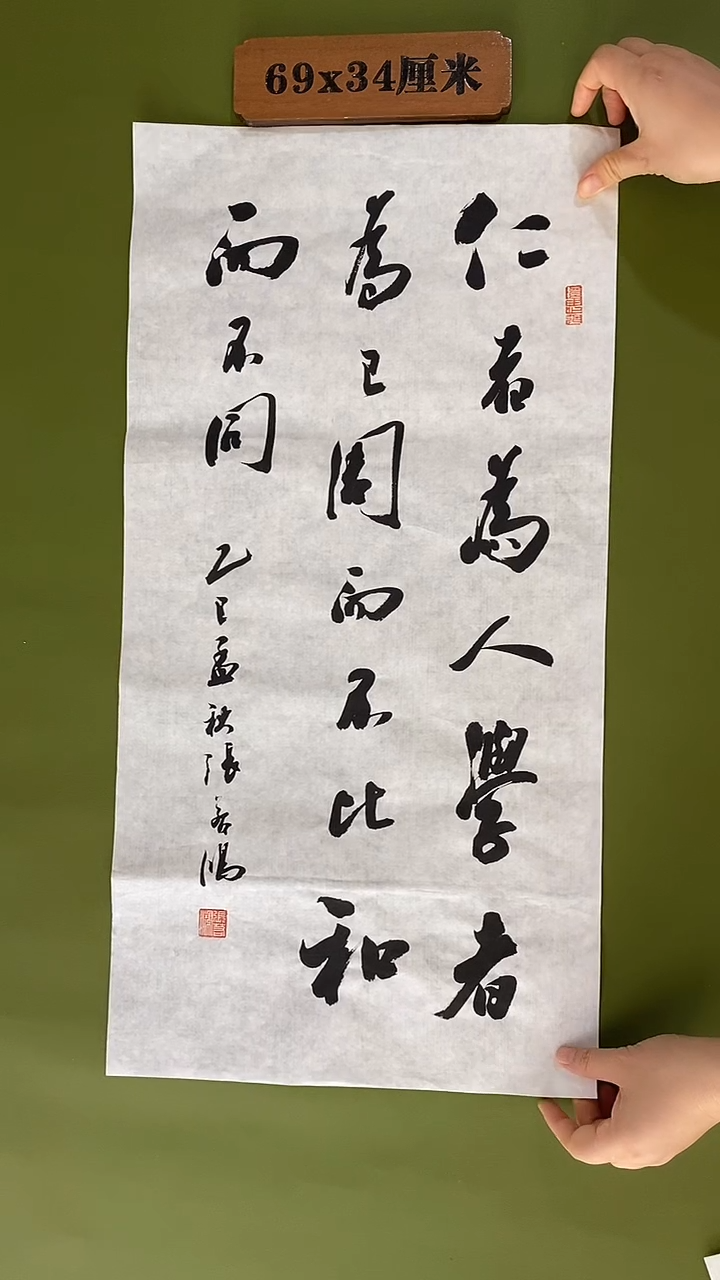 69x34厘米
仁者為人學者
為己周而不比和
而不同
乙巳孟秋張善鴻